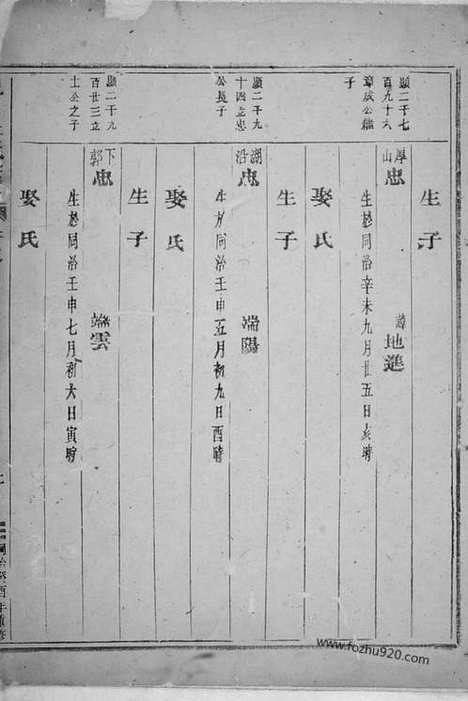 生子
顯二千七
百九十六
漳成公繼
子
厚山
忠
諱
地進
生於同治辛未九月廿五日亥時
娶氏
生子
顯二千九
十四立忠
公長子
湖沿
忠
端陽
生於同治壬申五月初九日酉時
娶氏
生子
顯二千九
百廿三立
士公之子
下郭
忠
端雲
生於同治壬申七月初六日寅時
娶氏
同治癸酉年重修
www.fozhu920.com